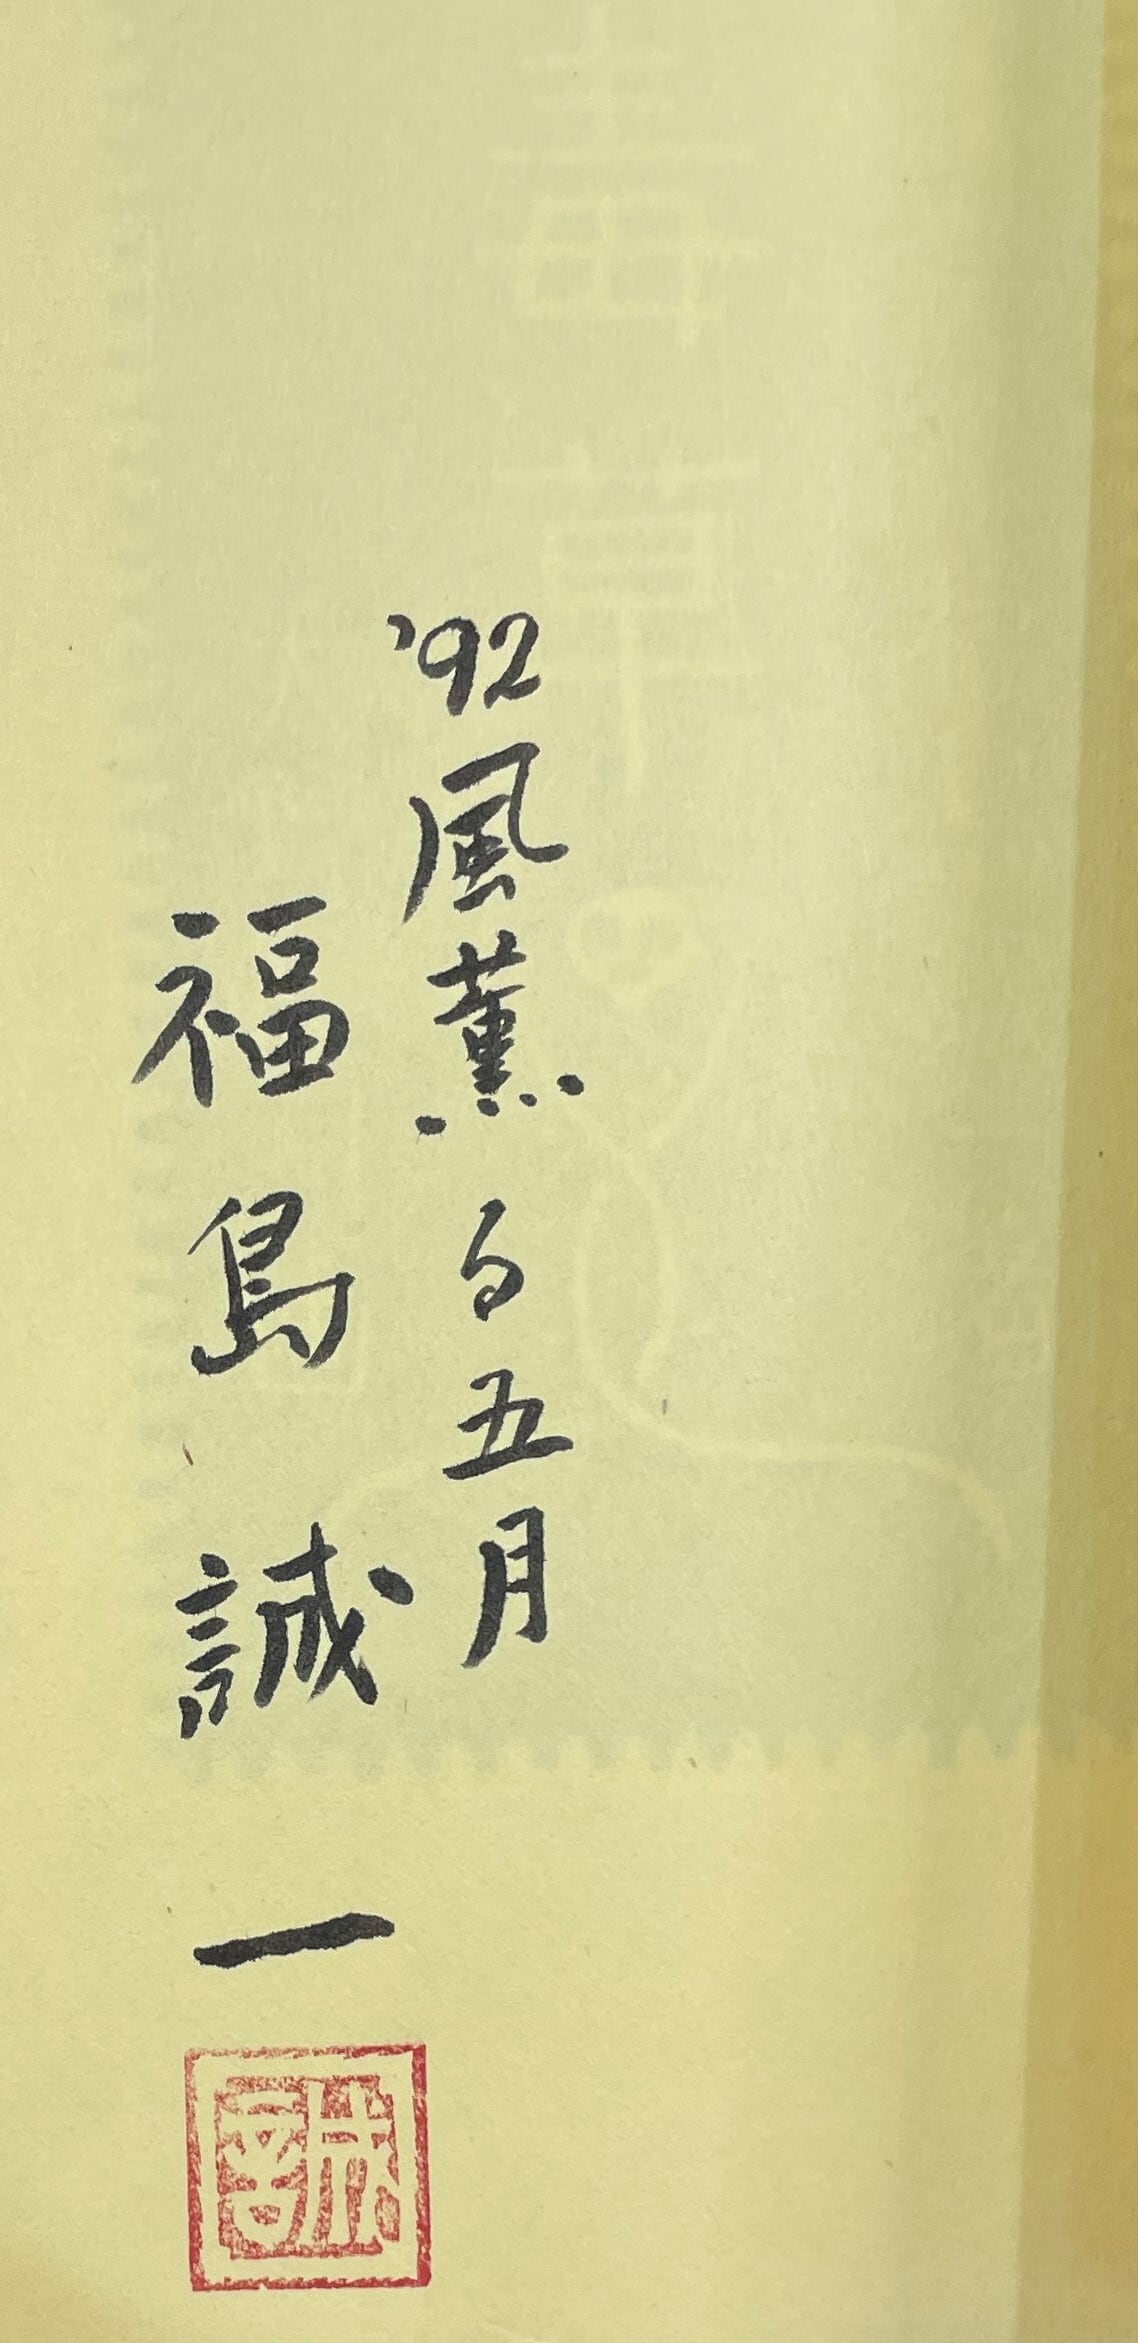 '92風薫る五月
福島誠一
誠